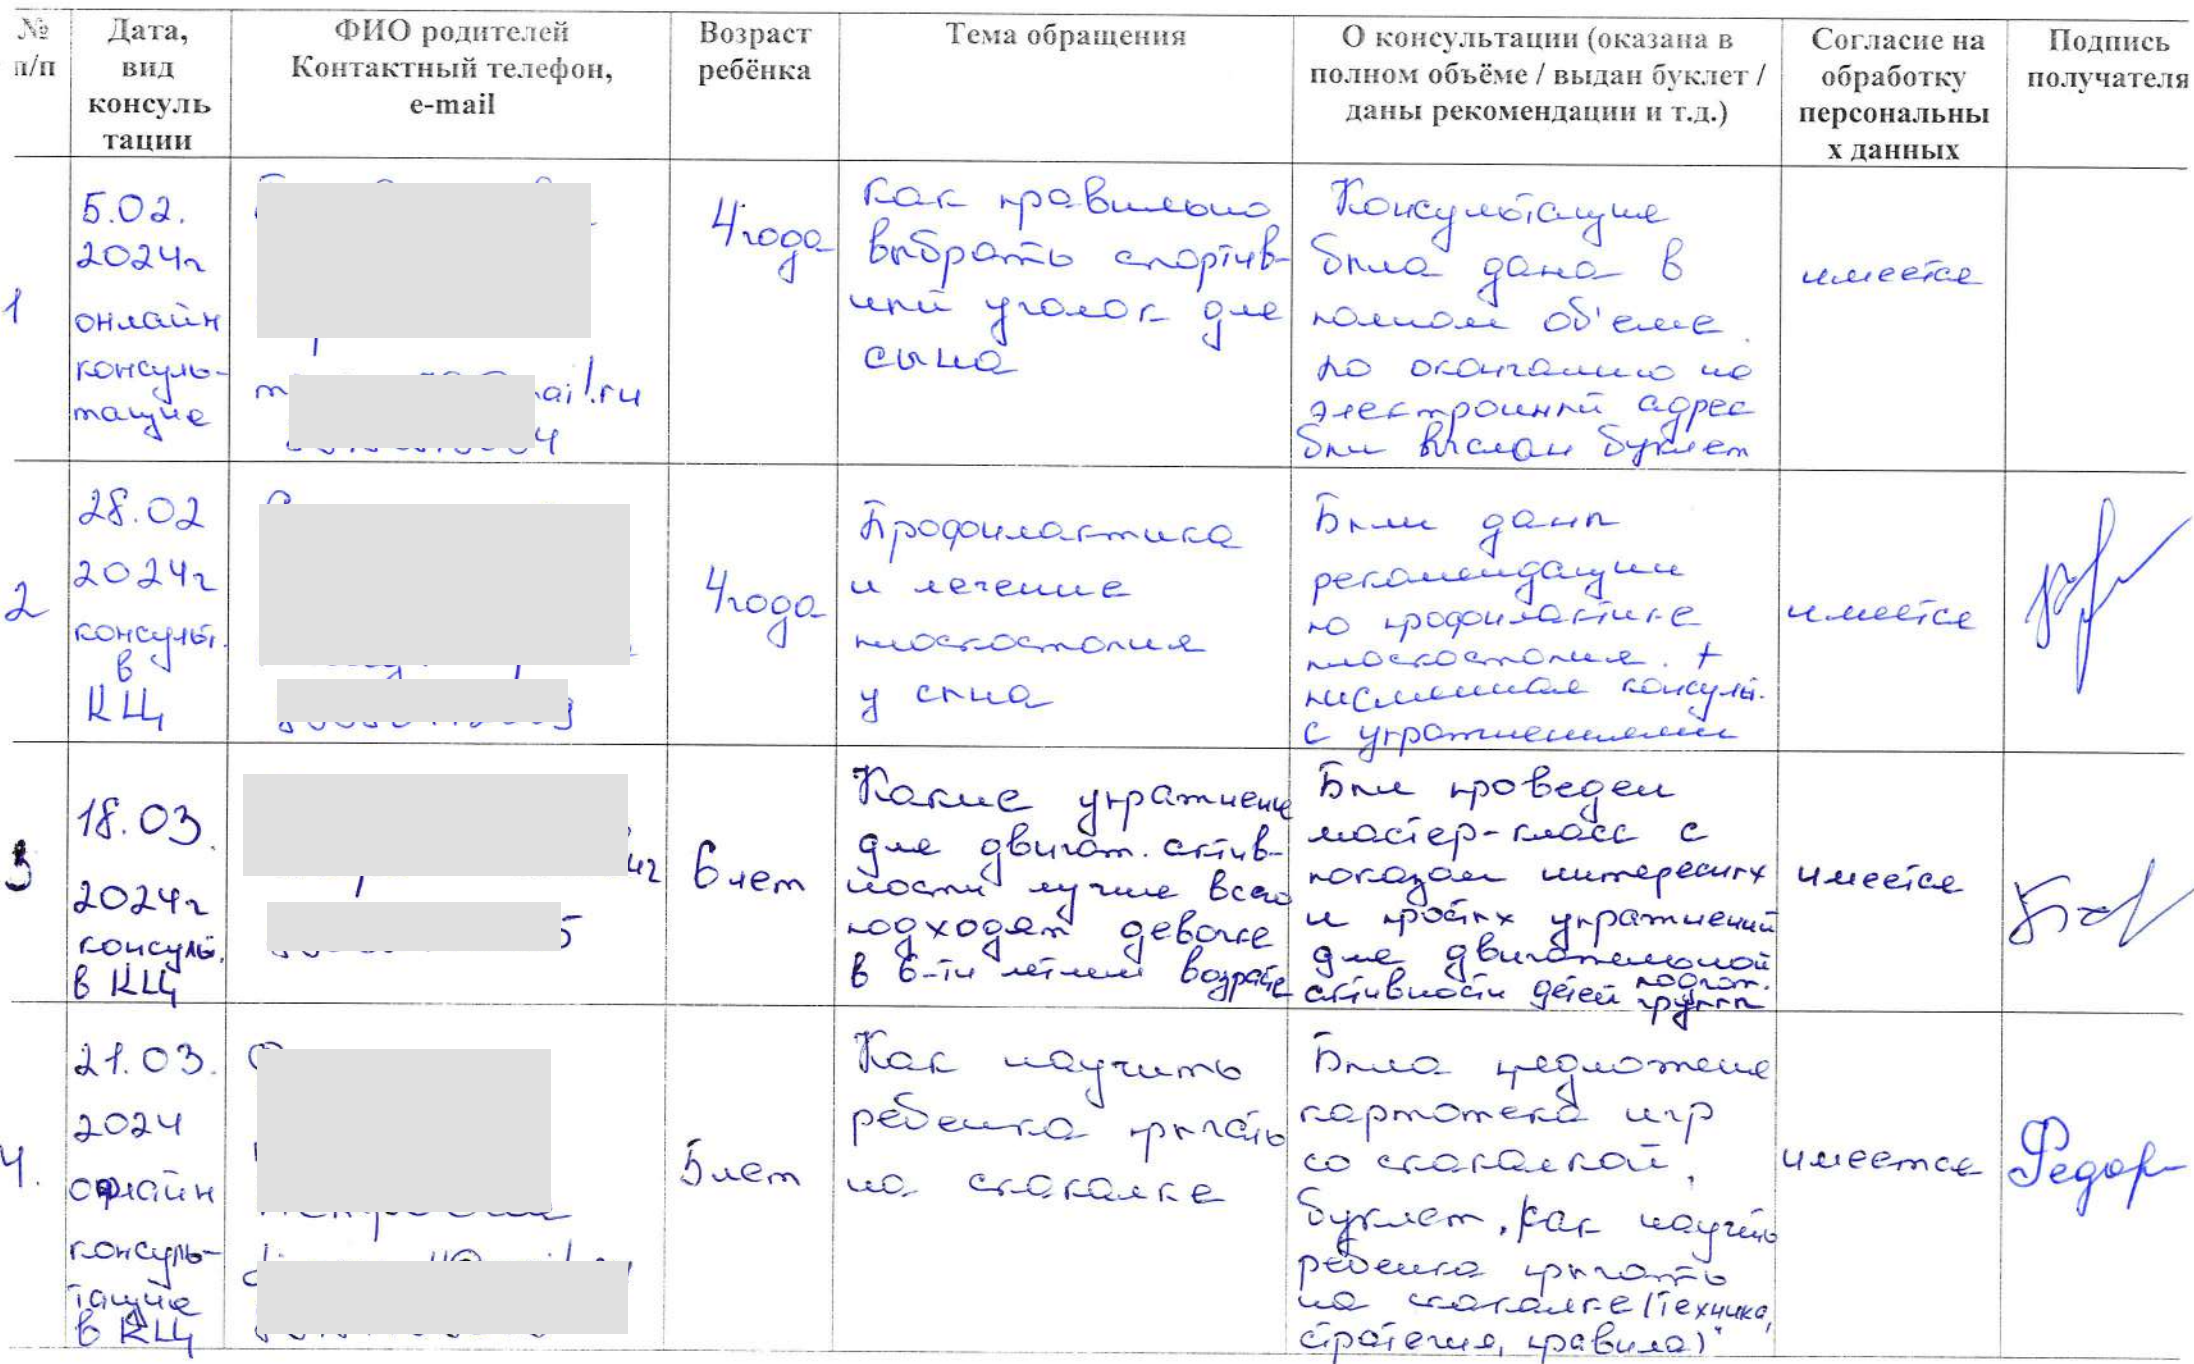 № п/п
Дата, вид консуль тации
ФИО родителей Контактный телефон, e-mail
Возраст ребёнка
Тема обращения
О консультации (оказана в полном объёме / выдан буклет / даны рекомендации и т.д.)
Согласие на обработку персональны х данных
Подпись получателя
1
5.02.
2024г
онлайн
консуль-
тация
ail.ru
4 года
Как правильно
выбрать спортив-
ный уголок для
сына
Консультация
была дана в
полном объеме.
по окончанию на
электронный адрес
был выслан буклет
имеется
2
28.02
2024г
консульт.
в
КЦ
4 года
Профилактика
и лечение
плоскостопия
у сына
Были даны
рекомендации
по профилактике
плоскостопия. +
письменная консульт.
с упражнениями
имеется
3
18.03.
2024г
консульт.
в КЦ
5
6 лет
Какие упражнение
для двигат. актив-
ности лучше всего
подходят девочке
в 6-ти летнем возрасте
Был проведен
мастер-класс с
показом интересных
и простых упражнений
для двигательной
активности детей подгот.
группы
имеется
4.
21.03.
2024
офлайн
консуль-
тация
в КЦ
5 лет
Как научить
ребенка прыгать
на скакалке
Была предложена
картотека игр
со скакалкой,
буклет "Как научить
ребенка прыгать
на скакалке (техника,
стратегия, правила)"
имеется
Федор